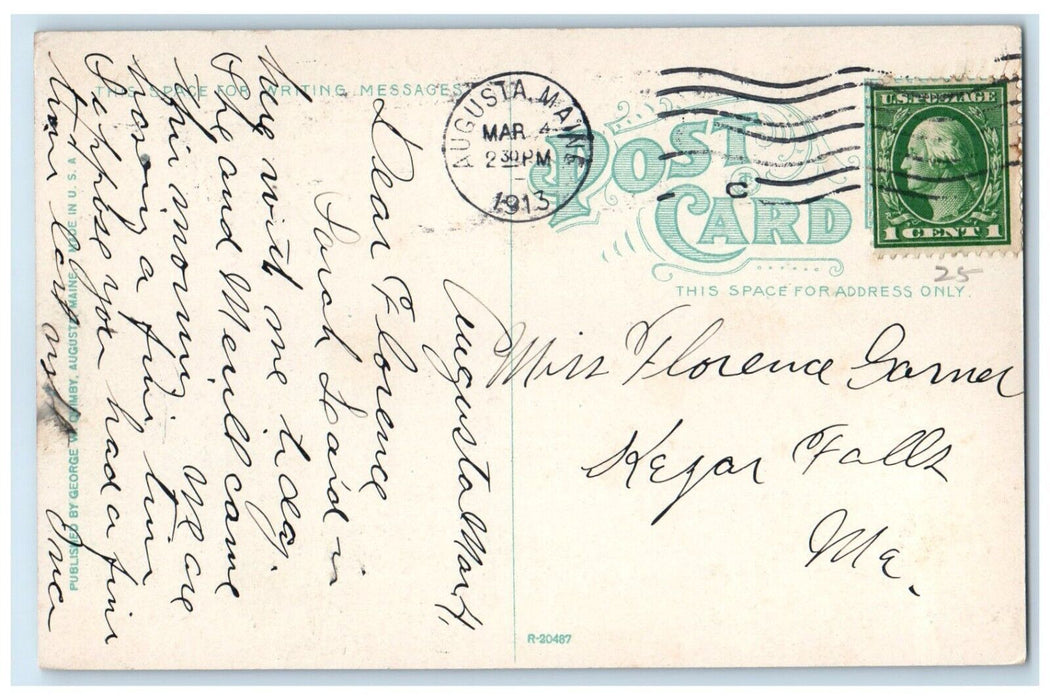 THIS SPACE FOR WRITING MESSAGES
AUGUSTA, MAINE
MAR 4
2 30 PM
1913
C
POST
CARD
U.S. POSTAGE
1 CENT 1
25
THIS SPACE FOR ADDRESS ONLY.
Miss Florence Garner
Kezar Falls
Me.
Augusta Mar 4,
Dear Florence
Laird is
here with me today.
She and Merill came
this morning We are
having a fine time
Suppose you had a fine
time
R-20487
PUBLISHED BY GEORGE W. QUIMBY, AUGUSTA, MAINE MADE IN U. S. A.